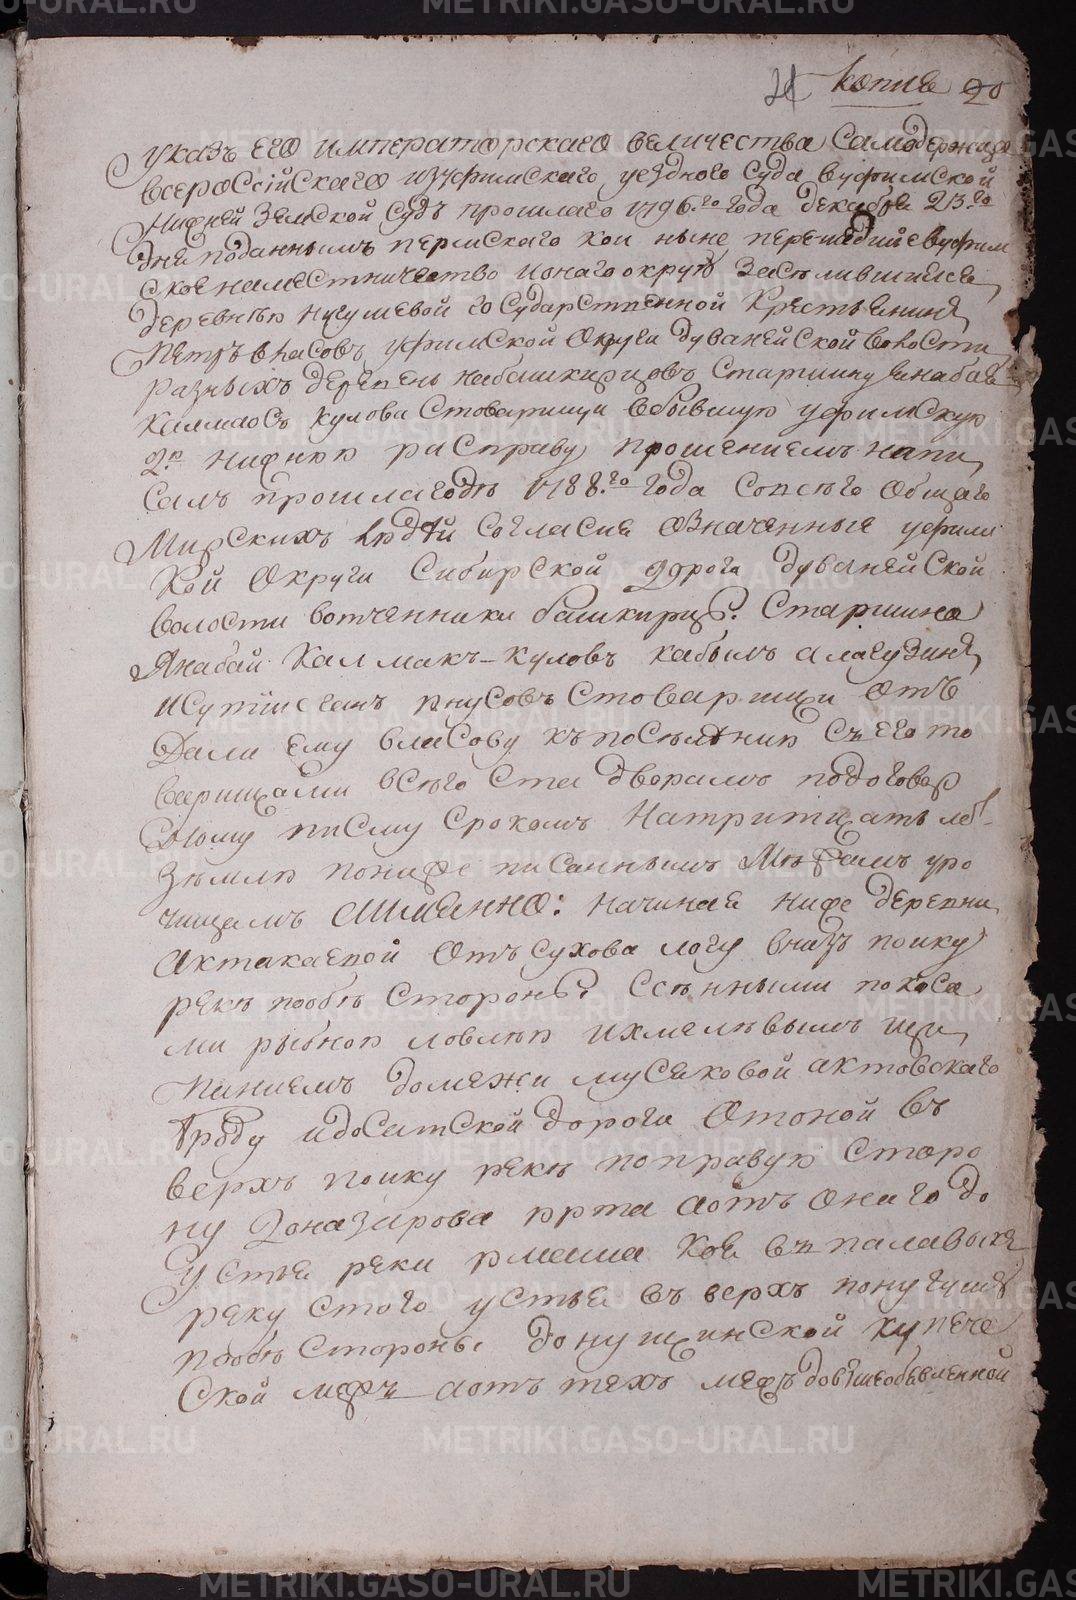 21 копия 20
Указъ его императорскаго величества Самодержца
всеросСiйСкаго изуфимскаго уезднаго Суда вуфимской
Нижней Земской Судъ прошлаго 1796.го года декабря 23го
дня поданнымъ пермскаго кои ныне перешедшие вуфим
ское наместничество ионаго округу Заселившимся
деревнъю государственной Крестьянинъ
Петръ власовъ уфимской Округи дуванейСкой волости
разныхъ деревень набашкирцовъ Старшину Янабая
Калмакъ кулова Стоварищи вбывшую уфимскую
2ю нижнюю расправу прошениемъ напи
Салъ прошлагодъ 1788.го года Совсего Общаго
Мирскихъ людей Согласия Означенныя уфимс
кой Округи Сибирской дороги дуванейской
волости вотченники башкирцы. Старшина
Янабай Калмакъ-куловъ кабылъ алагузинъ
юнусовъ Стоварищи Отъ
Дали ему власову къпоселению Съего то
варищами всего Ста дворамъ подоговор
ному писму Срокомъ Натритцать летъ
Землю пониже писаннымъ Межамъ уро
чищамъ Аимянно: начиная ниже деревни
Актакаевой Отъ Сухова логу внизъ поику
реке пообе Стороны Ссенными покоса
ми рыбною ловлею ихмелевымъ щи
паниемъ домежи мусяковой актовскаго
броду идосатской дороги Отоной въ
верхъ поику реке поправую Сторо
ну аотъ Онаго до
устья реки кое въпалавъ
реку Стого устья въ верхъ
пообе Стороны купече
Ской межъ аотъ техъ межъ